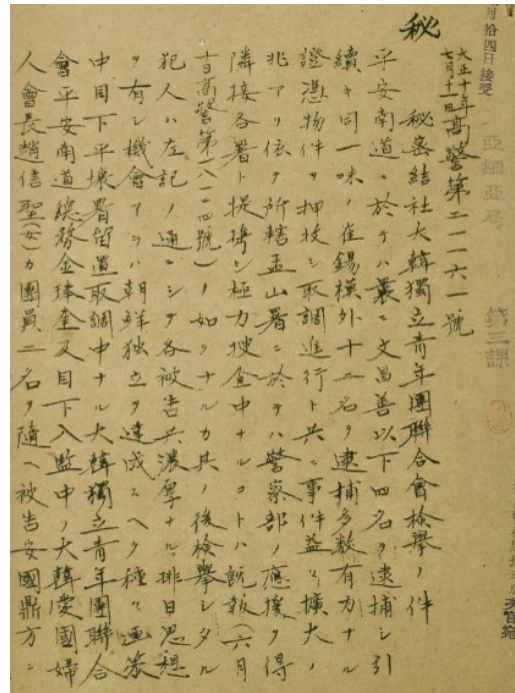 月拾四日接受
亞細亞局
第三課
秘
大正十年
七月十一日
高警第二一一六一號
秘密結社大韓獨立青年團聯合會檢擧ノ件
平安南道ニ於テハ曩ニ文昌善以下四名ヲ逮捕シ引
續キ同一味ノ崔錫模外十二名ヲ逮捕多数有力ナル
證憑物件ヲ押收シ取調進行ト共ニ事件益々擴大ノ
兆アリ依テ所轄孟山署ニ於テハ警察部ノ應援ヲ得
隣接各署ト提携シ極力捜査中ナルコトハ既報(六月
高警第一八一二四號)ノ如クナルカ其ノ後檢擧シタル
犯人ハ左記ノ通ニシテ各被告共濃厚ナル排日思想
ヲ有シ機會アラハ朝鮮独立ヲ達成スヘク種々画策
中目下平壤署留置取調中ナル大韓獨立青年團聯合
會平安南道總務金琫奎及目下入監中ノ大韓愛國婦
人會長趙信聖(女)カ團員二名ヲ隨ヘ被告安國鼎方ニ